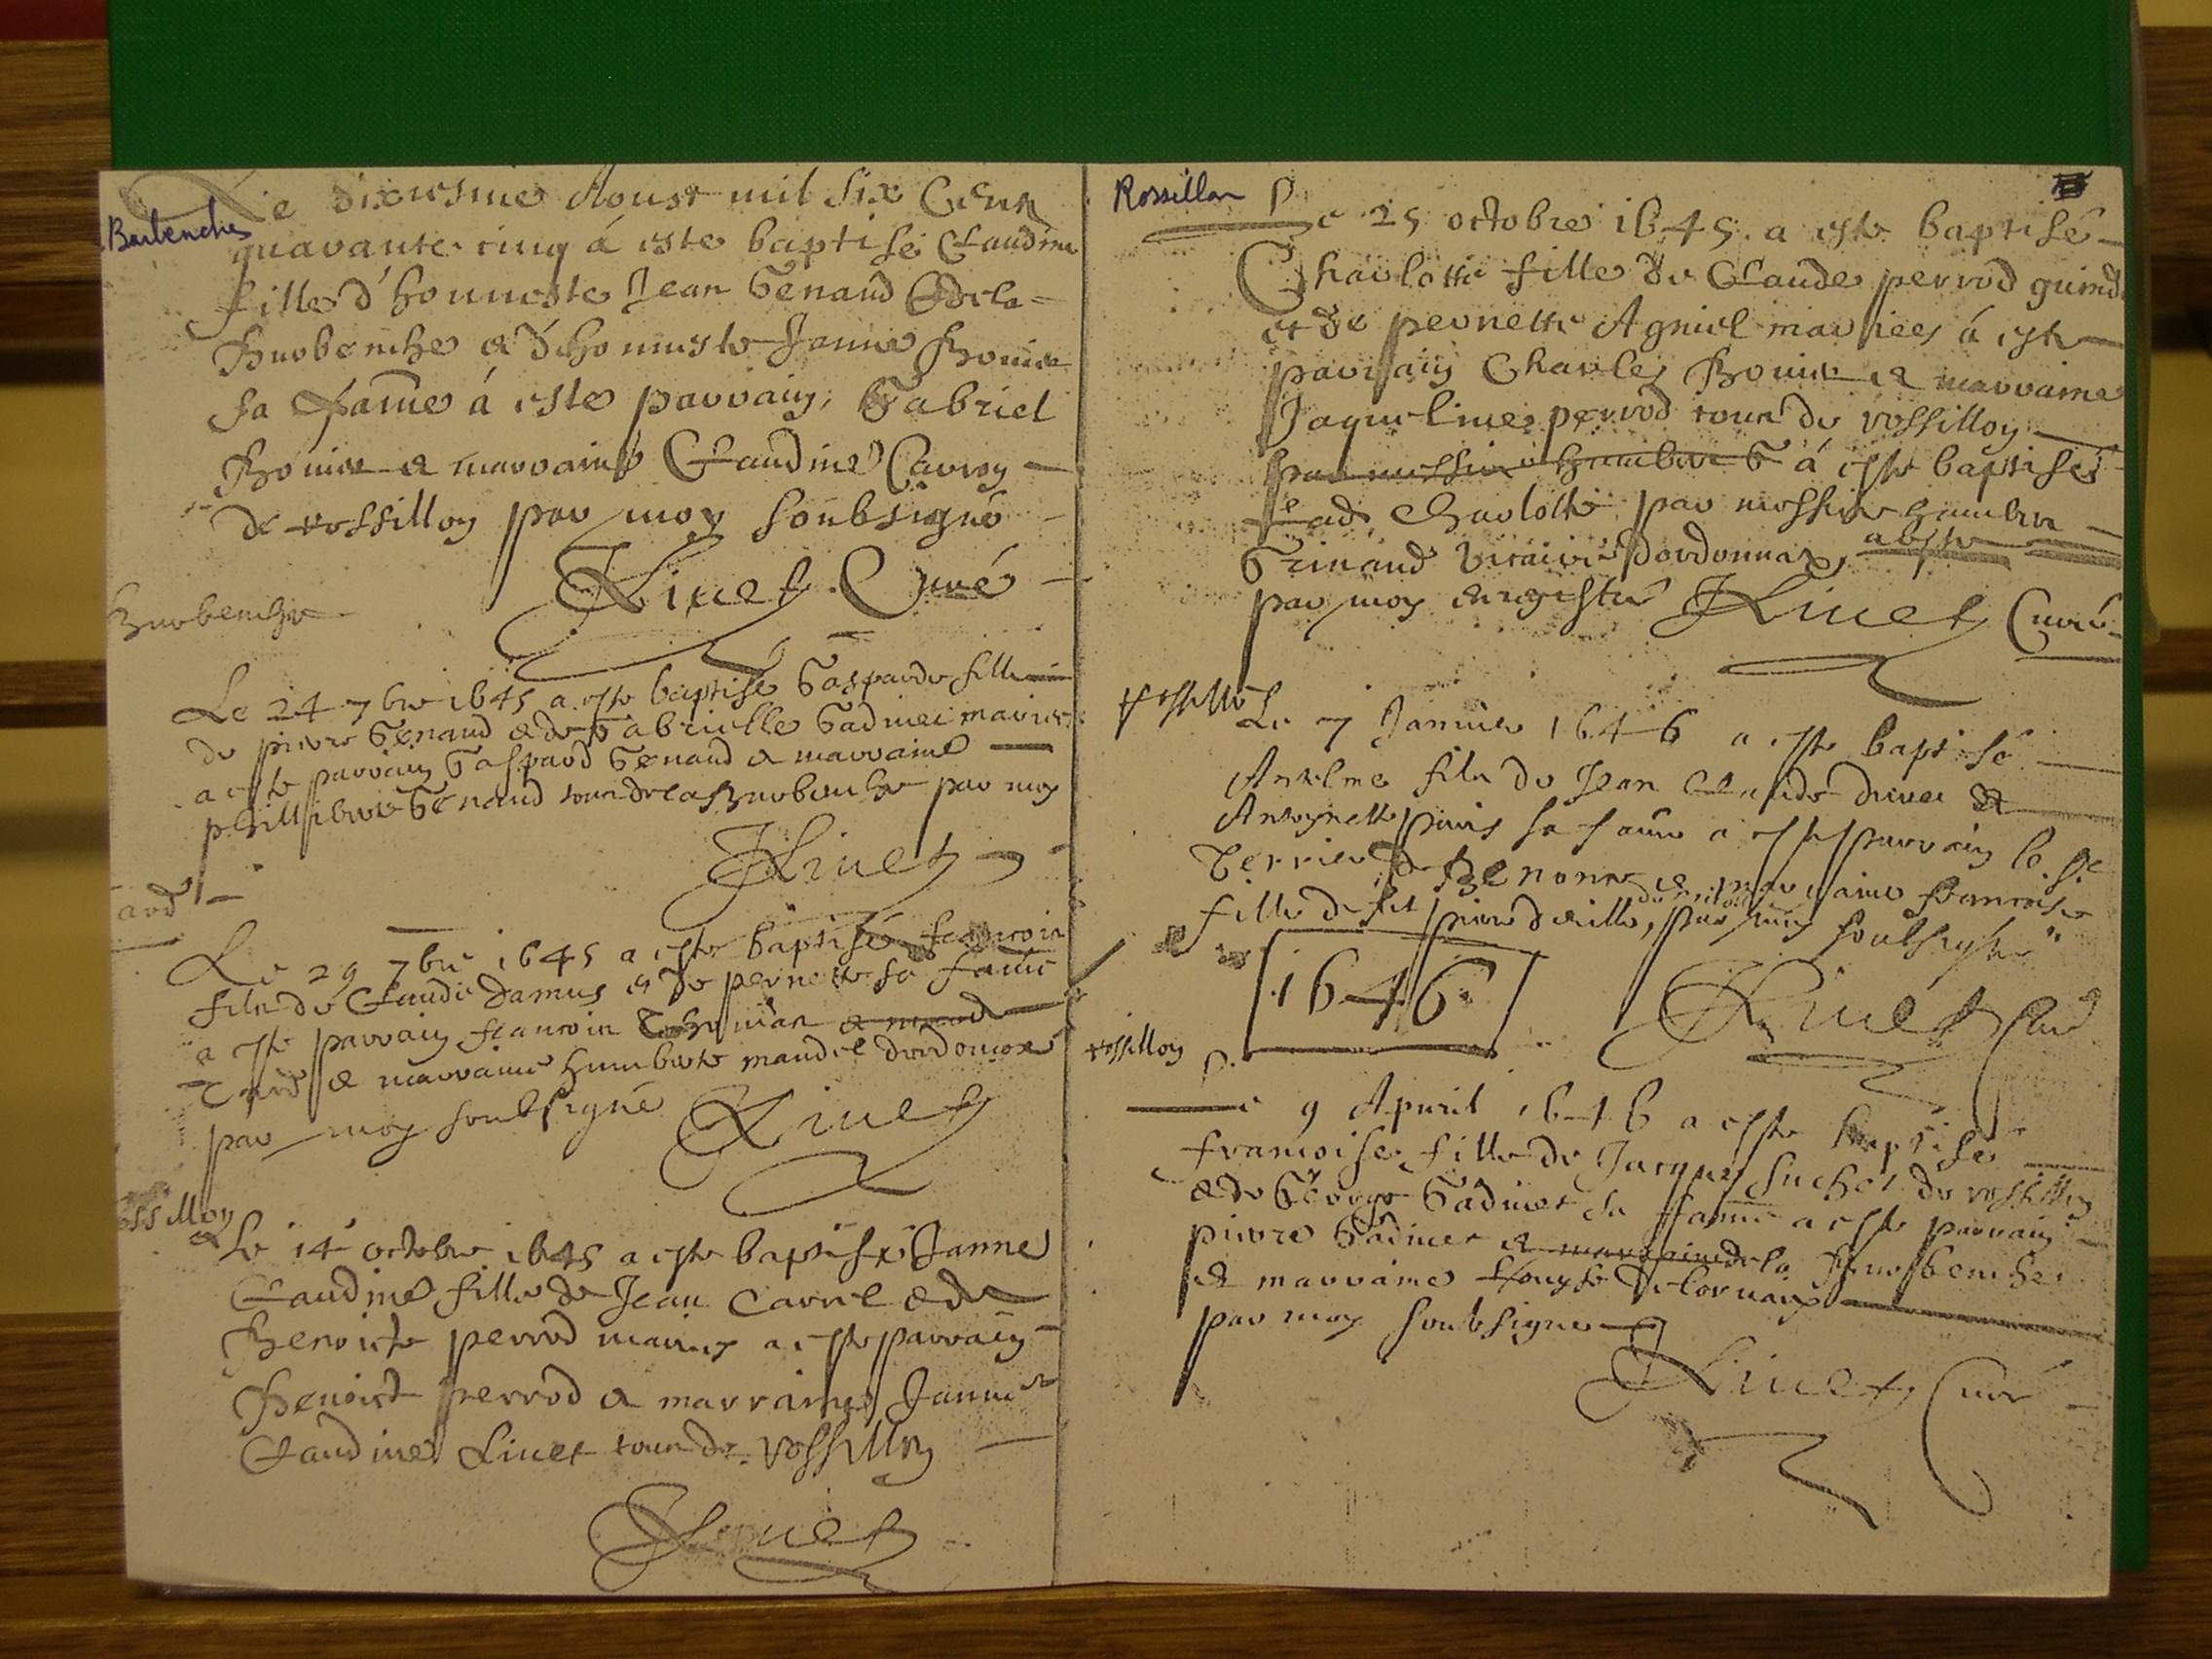 Barbenche
Le dixiesme Aoust mil six Cens
quarante cinq á este baptisé Claudine
fille d'honneste Jean Genaud & de la
Burbenche & d'honneste Janne Bouier
sa fame á este parrain, Gabriel
Bouier & marraine Claudine Carrey
de rossillon par moy soubsigné
Liuet Curé
Burbenche
Le 24 7bre 1645 a este baptisé Gasparde fille
de pierre Genaud & de Gabrielle Gadinet mariés
a este parrain Gaspard Genaud & marraine
phillibere Genaud tous de la Burbenche par moy
JLiuet
ard
Le 29 7bre 1645 a este baptisé francois
fils de Claude Damus & de pernette sa fame
a este parrain francois
& marraine humberte mandel
par moy soubsigné Liuet
ossillon
Le 14 octobre 1645 a este baptisée Janne
Claudine fille de Jean Carrel & de
Benoiste perrod mariés a este parrain
Benoist perrod & marraine Janne
Claudine Liuet tous de rossillon
JLiuet
Rossillon
Le 25 octobre 1645 a este baptisé
Charlotte fille de Claude perrod guind
et de pernette Agniel mariées á este
parrain Charles Bouier & marraine
Jaqueline perrod tous de rossillon
par messire humbert G á este baptisé
lad. Charlotte par messire humbert
Grinand vicaire dordonnaz,
par moy enregistré JLiuet Curé
rossillon
Le 7 Januier 1646 a este baptisé
Antelme fils de Jean Claude & 
Antoynette sa fame a este parrain le Sr
Terrier de & marraine francoise
fille de fut pierre par moy soubsigné
1646
JLiuet Curé
rossillon
Le 9 Apuril 1646 a este baptisé
francoise fille de Jacques suchet de rossillon
& de George Gadinet sa fame a este parrain
pierre Gadinet & marraine de la Burbenche
& marraine
par moy soubsigné
JLiuet Curé